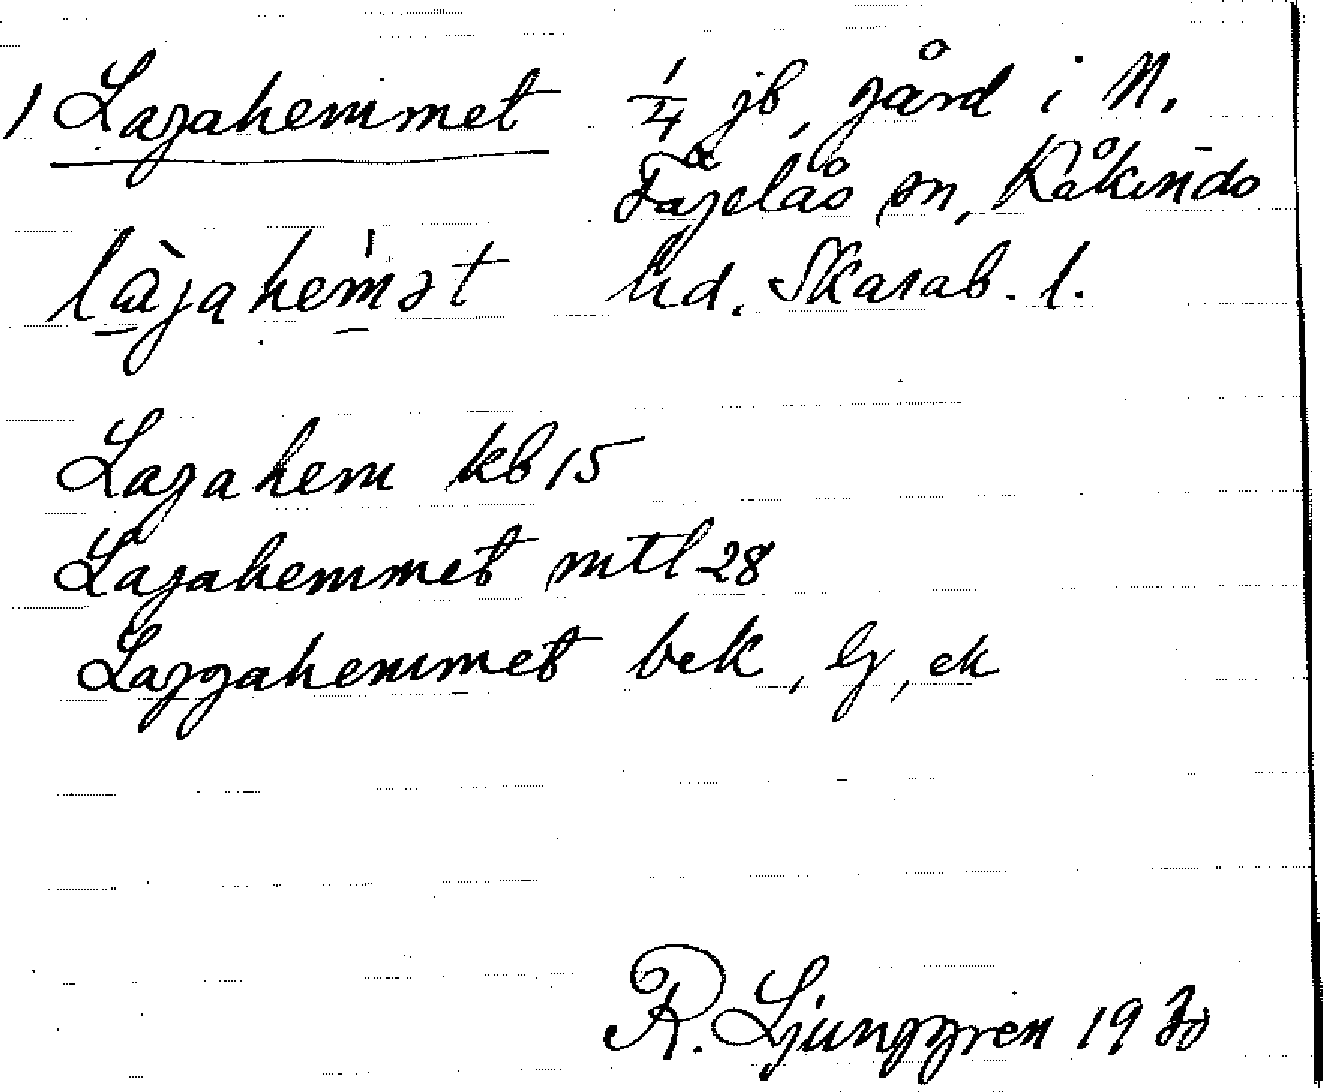 1 Lagahemmet 1/4 jb, gård i N.
Fägelås sn, Kåkinds
hd. Skarab. l.
Lagahem kb 15
Lagahemmet mtl 28
Laggahemmet bek, lj, ek
R. Ljunggren 1930